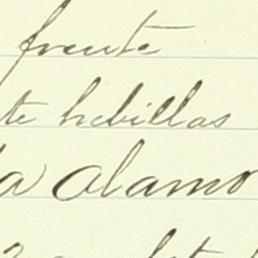 frente
te hebillas
a alamo